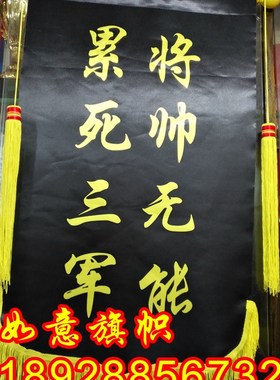 将帅无能
累死三军
如意旗帜
18928856732